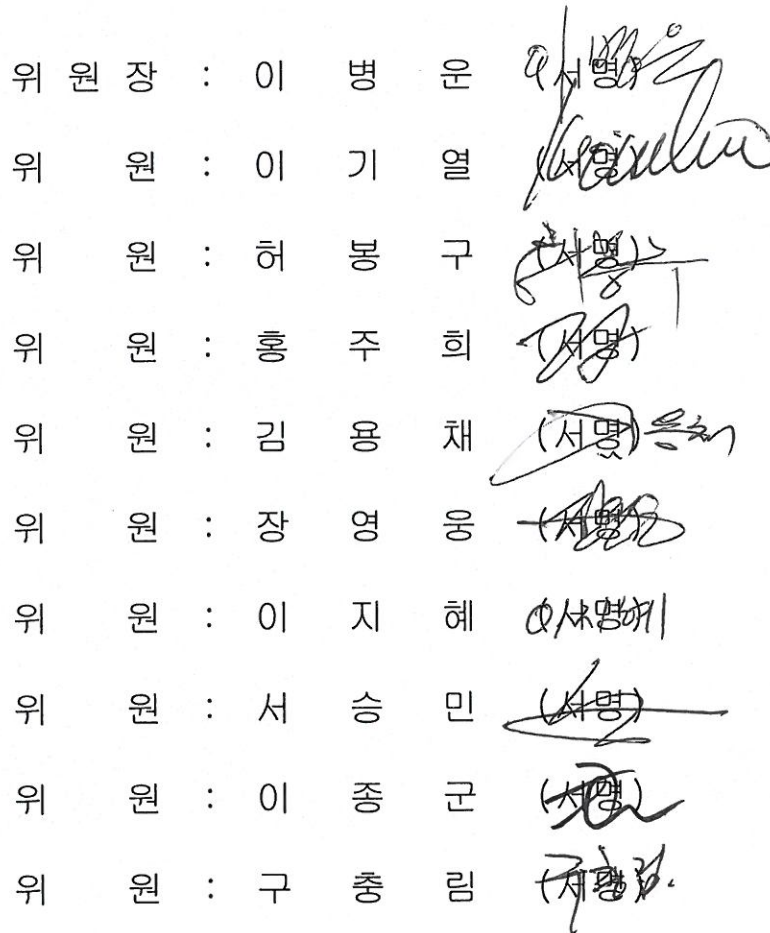 위 원 장 : 이 병 운 (서명)
위 원 : 이 기 열 (서명)
위 원 : 허 봉 구 (서명)
위 원 : 홍 주 희 (서명)
위 원 : 김 용 채 (서명)
위 원 : 장 영 웅 (서명)
위 원 : 이 지 혜 (서명)
위 원 : 서 승 민 (서명)
위 원 : 이 종 군 (서명)
위 원 : 구 충 림 (서명)